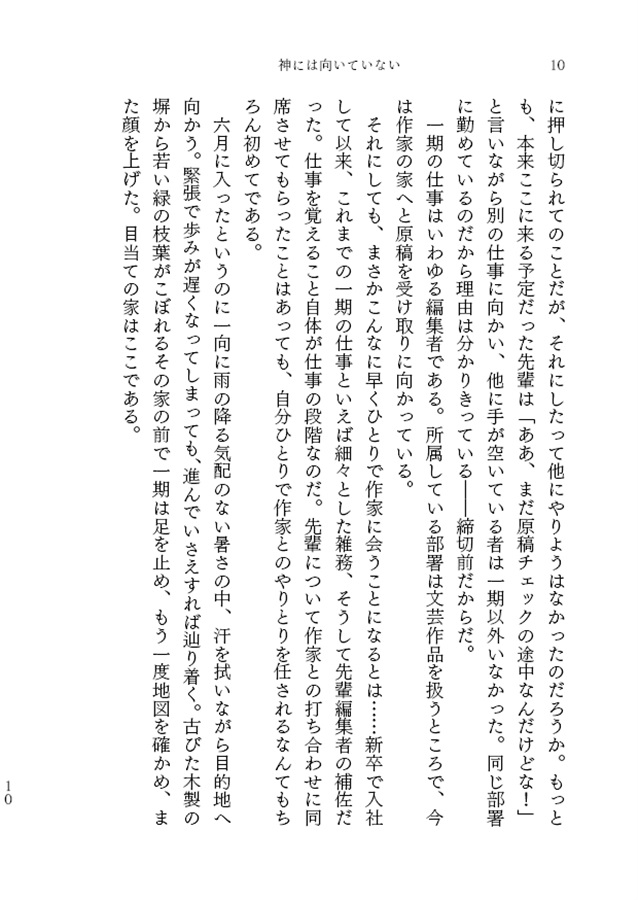 神には向いていない
10
に押し切られてのことだが、それにしたって他にやりようはなかったのだろうか。もっと
も、本来ここに来る予定だった先輩は「ああ、まだ原稿チェックの途中なんだけどな！」
と言いながら別の仕事に向かい、他に手が空いている者は一期以外いなかった。同じ部署
に勤めているのだから理由は分かりきっている――締切前だからだ。
一期の仕事はいわゆる編集者である。所属している部署は文芸作品を扱うところで、今
は作家の家へと原稿を受け取りに向かっている。
それにしても、まさかこんなに早くひとりで作家に会うことになるとは……新卒で入社
して以来、これまでの一期の仕事といえば細々とした雑務、そうして先輩編集者の補佐だ
った。仕事を覚えること自体が仕事の段階なのだ。先輩について作家との打ち合わせに同
席させてもらったことはあっても、自分ひとりで作家とのやりとりを任されるなんてもち
ろん初めてである。
六月に入ったというのに一向に雨の降る気配のない暑さの中、汗を拭いながら目的地へ
向かう。緊張で歩みが遅くなってしまっても、進んでいさえすれば辿り着く。古びた木製の
塀から若い緑の枝葉がこぼれるその家の前で一期は足を止め、もう一度地図を確かめ、ま
た顔を上げた。目当ての家はここである。
10